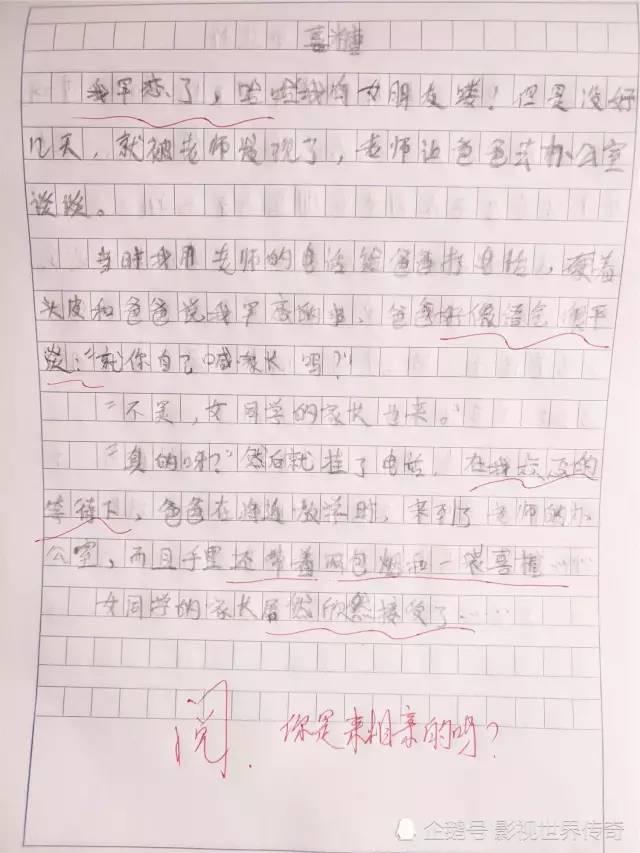 喜糖
我早恋了，哈哈我有女朋友喽！但是没好
几天，就被老师发现了，老师让爸爸去办公室
谈谈。
当时我用老师的电话给爸爸打电话，硬着
头皮和爸爸说我早恋的事，爸爸好像语气很平
淡："就你自己喊家长吗？"
"不是，女同学的家长也来。"
"真的呀？"然后就挂了电话，在我忐忑的
等待下，爸爸在将近放学时，来到了老师的办
公室，而且手里还带着两包烟和一袋喜糖……
女同学的家长居然欣然接受了……
阅. 你是来相亲的吗？
企鹅号 影视世界传奇